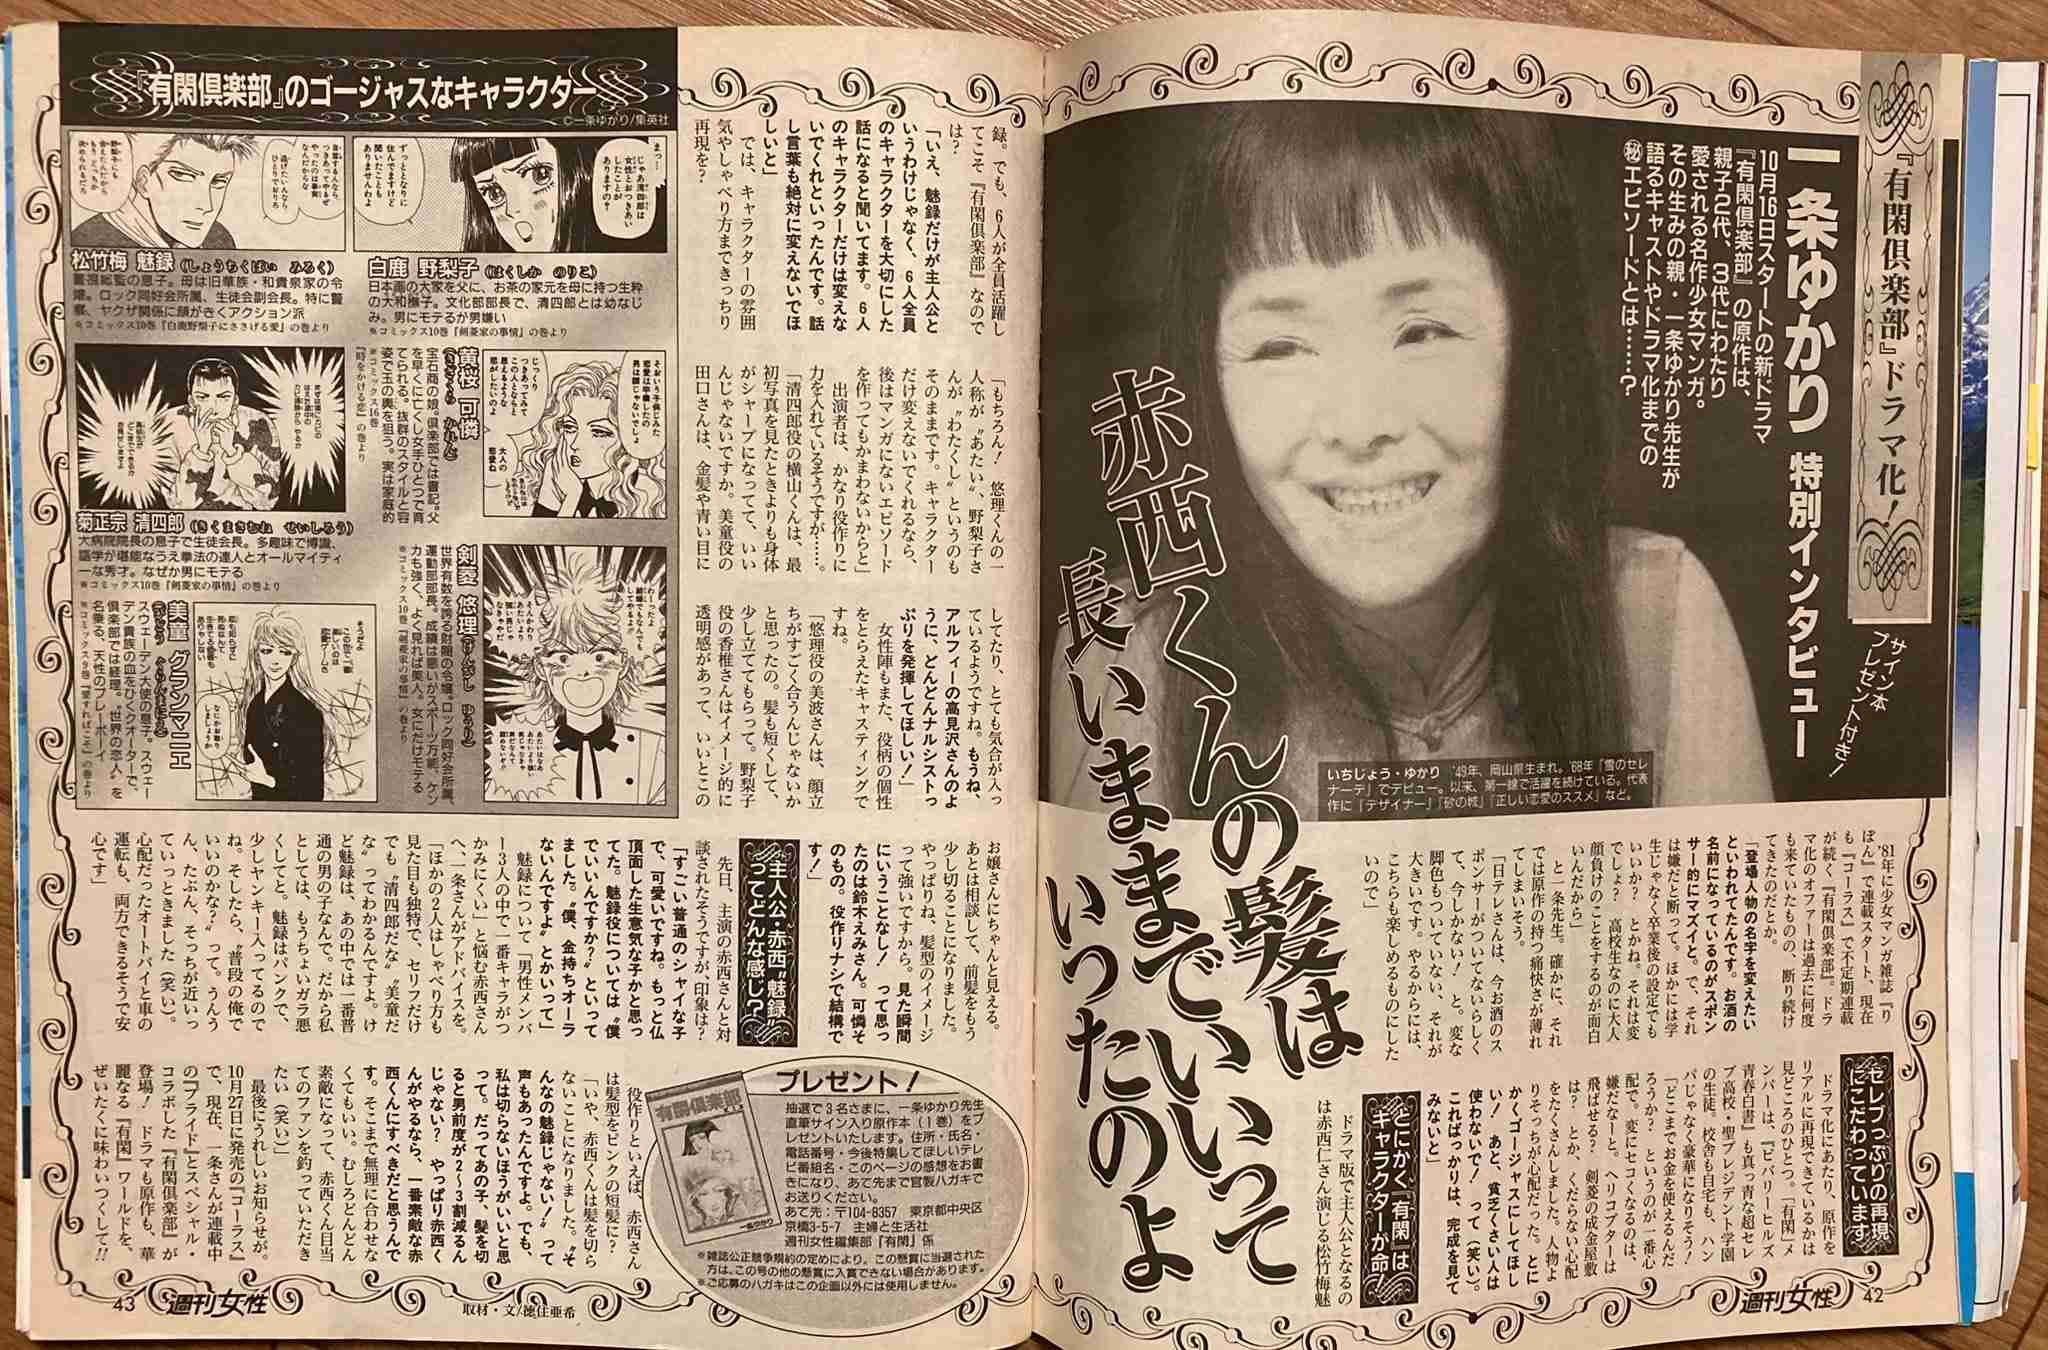 『有閑倶楽部』ドラマ化!
一条ゆかり 特別インタビュー
サイン本
プレゼント付き!
10月16日スタートの新ドラマ
『有閑倶楽部』の原作は、
親子2代、3代にわたり
愛される名作少女マンガ。
その生みの親・一条ゆかり先生が
語るキャストやドラマ化までの
㊙エピソードとは……?
赤西くんの髪は
長いままでいいって
いったのよ
いちじょう・ゆかり '49年、岡山県生まれ。'68年「雪のセレ
ナーデ」でデビュー。以来、第一線で活躍を続けている。代表
作に「デザイナー」「砂の城」「正しい恋愛のススメ」など。
'81年に少女マンガ雑誌『り
ぼん』で連載スタート、現在
も『コーラス』で不定期連載
が続く『有閑倶楽部』。ドラ
マ化のオファーは過去に何度
も来ていたものの、断り続け
てきたのだとか。
「登場人物の名字を変えたい
といわれてたんです。お酒の
名前になっているのがスポン
サー的にマズイと。で、それ
は嫌だと断って。ほかには学
生じゃなく卒業後の設定でも
いいか? とかね。それは変
顔負けのことをするのが面白
いんだから」
と一条先生。確かに、それ
では原作の持つ痛快さが薄れ
てしまいそう。
「日テレさんは、今お酒のス
ポンサーがついてないらしく
て、今しかない! と。変な
脚色もついていない、それが
大きいです。やるからには、
こちらも楽しめるものにした
いので」
セレブっぷりの再現
にこだわっています
ドラマ化にあたり、原作を
リアルに再現できているかは
見どころのひとつ。『有閑』メ
ンバーは、『ビバリーヒルズ
青春白書』も真っ青な超セレ
ブ高校・聖プレジデント学園
の生徒。校舎も自宅も、ハン
パじゃなく豪華になりそう!
「どこまでお金を使えるんだ
ろうか? というのが一番心
配で。変にセコくなるのは、
嫌だなーと。ヘリコプターは
飛ばせる? 剣菱の成金屋敷
は? とか、くだらない心配
をたくさんしました。人物よ
りそっちが心配だった。とに
かくゴージャスにしてほし
い! あと、貧乏くさい人は
使わないで! って(笑い)。
こればっかりは、完成を見て
みないと」
とにかく『有閑』は
キャラクターが命!
ドラマ版で主人公となるの
は赤西仁さん演じる松竹梅魅
週刊女性 42
録。でも、6人が全員活躍し
てこそ『有閑倶楽部』なので
は?
「いえ、魅録だけが主人公と
いうわけじゃなく、6人全員
のキャラクターを大切にした
話になると聞いてます。6人
のキャラクターだけは変えな
いでくれといったんです。話
し言葉も絶対に変えないでほ
しいと」
では、キャラクターの雰囲
気やしゃべり方まできっちり
再現を?
「もちろん! 悠理くんの一
人称が〝あたい〟、野梨子さ
んが〝わたくし〟というのも
そのままです。キャラクター
だけ変えないでくれるなら、
後はマンガにないエピソード
を作ってもかまわないからと」
出演者は、かなり役作りに
力を入れているそうですが……。
「清四郎役の横山くんは、最
初写真を見たときよりも身体
がシャープになってて、いい
んじゃないですか。美童役の
田口さんは、金髪や青い目に
してたり、とても気合が入っ
ているようですね。もうね、
アルフィーの高見沢さんのよ
うに、どんどんナルシストっ
ぷりを発揮してほしい!」
女性陣もまた、役柄の個性
をとらえたキャスティングで
すね。
「悠理役の美波さんは、顔立
ちがすごく合うんじゃないか
と思ったの。髪も短くして、
少し立ててもらって。野梨子
役の香椎さんはイメージ的に
透明感があって、いいとこの
お嬢さんにちゃんと見える。
あとは相談して、前髪をもう
少し切ることになりました。
やっぱりね、髪型のイメージ
って強いですから。見た瞬間
にいうことなし! って思っ
たのは鈴木えみさん。可憐そ
のもの。役作りナシで結構で
す!」
主人公・赤西〝魅録〟
ってどんな感じ?
先日、主演の赤西さんと対
談されたそうですが、印象は?
「すごい普通のシャイな子
で、可愛いですね。もっと仏
頂面した生意気な子かと思っ
てた。魅録役については〝僕
でいいんですか?〟といって
ました。〝僕、金持ちオーラ
ないんですよ〟とかいって」
魅録について「男性メンバ
ー3人の中で一番キャラがつ
かみにくい」と悩む赤西さん
へ、一条さんがアドバイスを。
「ほかの2人はしゃべり方も
見た目も独特で、セリフだけ
でも〝清四郎だな〟〝美童だ
な〟ってわかるんですよ。け
ど魅録は、あの中では一番普
通の男の子なんで。だから私
としては、もうちょいガラ悪
くしてと。魅録はパンクで、
少しヤンキー入ってるので
ね。そしたら、〝普段の俺で
いいのかな?〟って。うんう
ん、たぶん、そっちが近いっ
ていっときました(笑い)。
心配だったオートバイと車の
運転も、両方できるそうで安
心です」
役作りといえば、赤西さん
は髪型をピンクの短髪に?
「いや、赤西くんは髪を切ら
ないことになりました。〝そ
んなの魅録じゃない!〟って
声もあったんですよ。でも、
私は切らないほうがいいと思
って。だってあの子、髪を切
ると男前度が2〜3割減るん
じゃない? やっぱり赤西く
んがやるなら、一番素敵な赤
西くんにすべきだと思うんで
す。そこまで無理に合わせな
くてもいい。むしろどんどん
素敵になって、赤西くん目当
てのファンを釣っていただき
たい(笑い)」
最後にうれしいお知らせが。
10月27日に発売の『コーラス』
で、現在、一条さんが連載中
の『プライド』とスペシャル・
コラボした『有閑倶楽部』が
登場! ドラマも原作も、華
麗なる『有閑』ワールドを、
ぜいたくに味わいつくして!!
取材・文/徳住亜希
『有閑倶楽部』のゴージャスなキャラクター
©一条ゆかり/集英社
まっ…
じゃあ清四郎は
女性とおつきあい
したことが
ありますの?
ずっととなりに
住んでますけど
聞いたことも
ありませんわ
白鹿 野梨子(はくしか のりこ)
日本画の大家を父に、お茶の家元を母に持つ生粋
の大和撫子。文化部部長で、清四郎とは幼なじ
み。男にモテるが男嫌い
※コミックス10巻『剣菱家の事情』の巻より
松竹梅 魅録(しょうちくばい みろく)
警視総監の息子。母は旧華族・和貴泉家の令
嬢。ロック同好会所属、生徒会副会長。特に警
察、ヤクザ関係に顔がきくアクション派
※コミックス10巻『白鹿野梨子にささげる愛』の巻より
じっくり
つきあってみて
この人となら
思えるような
恋がしたいのよ
大人の
恋愛ね
黄桜 可憐
(きざくら かれん)
宝石商の娘。倶楽部では書記。父
を早くに亡くし女手ひとつで育
てられる。抜群のスタイルと容
姿で玉の輿を狙う。実は家庭的
※コミックス16巻
『時をかける恋』の巻より
菊正宗 清四郎(きくまさむね せいしろう)
大病院院長の息子で生徒会長。多趣味で博識、
語学が堪能なうえ拳法の達人とオールマイティ
ーな秀才。なぜか男にモテる
※コミックス10巻『剣菱家の事情』の巻より
剣菱 悠理(けんびし ゆうり)
世界有数を誇る財閥の令嬢。ロック同好会所属、
運動部部長。成績は悪いがスポーツ万能、ケン
カも強く、よく見れば美人。女にだけモテる
※コミックス10巻『剣菱家の事情』の巻より
美童 グランマニエ
(びどう ぐらんまにえ)
スウェーデン大使の息子。スウェー
デン貴族の血をひくクオーターで、
倶楽部では経理。〝世界の恋人〟を
名乗る、天性のプレーボーイ
プレゼント!
有閑倶楽部
一条ゆかり
抽選で3名さまに、一条ゆかり先生
直筆サイン入り原作本(1巻)をプ
レゼントいたします。住所・氏名・
電話番号・今後特集してほしいテレ
ビ番組名・このページの感想をお書
きになり、あて先まで官製ハガキで
お送りください。
あて先:〒104-8357 東京都中央区
京橋3-5-7 主婦と生活社
週刊女性編集部「有閑」係
※雑誌公正競争規約の定めにより、この懸賞に当選された
方は、この号の他の懸賞に入賞できない場合があります。
※ご応募のハガキはこの企画以外には使用しません。
43 週刊女性